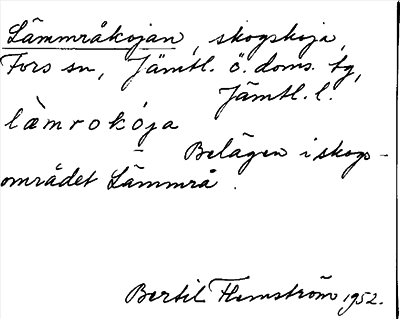 Lämmråkojan, skogskoja,
Fors sn, Jämtl. ö. doms. tg,
Jämtl. l.
lämrokója
Belägen i skogs-
området Lämmrå.
Bertil Flemström 1952.